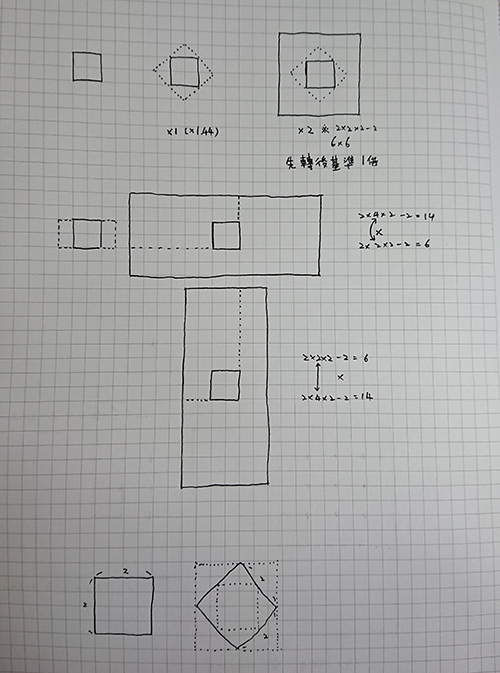 ×1 (×1.44)
×2 ※ 2×2×2-2
6×6
先轉後基準1倍
2×4×2-2=14
×
2×2×2-2=6
2×2×2-2=6
×
2×4×2-2=14
2
2
2
2